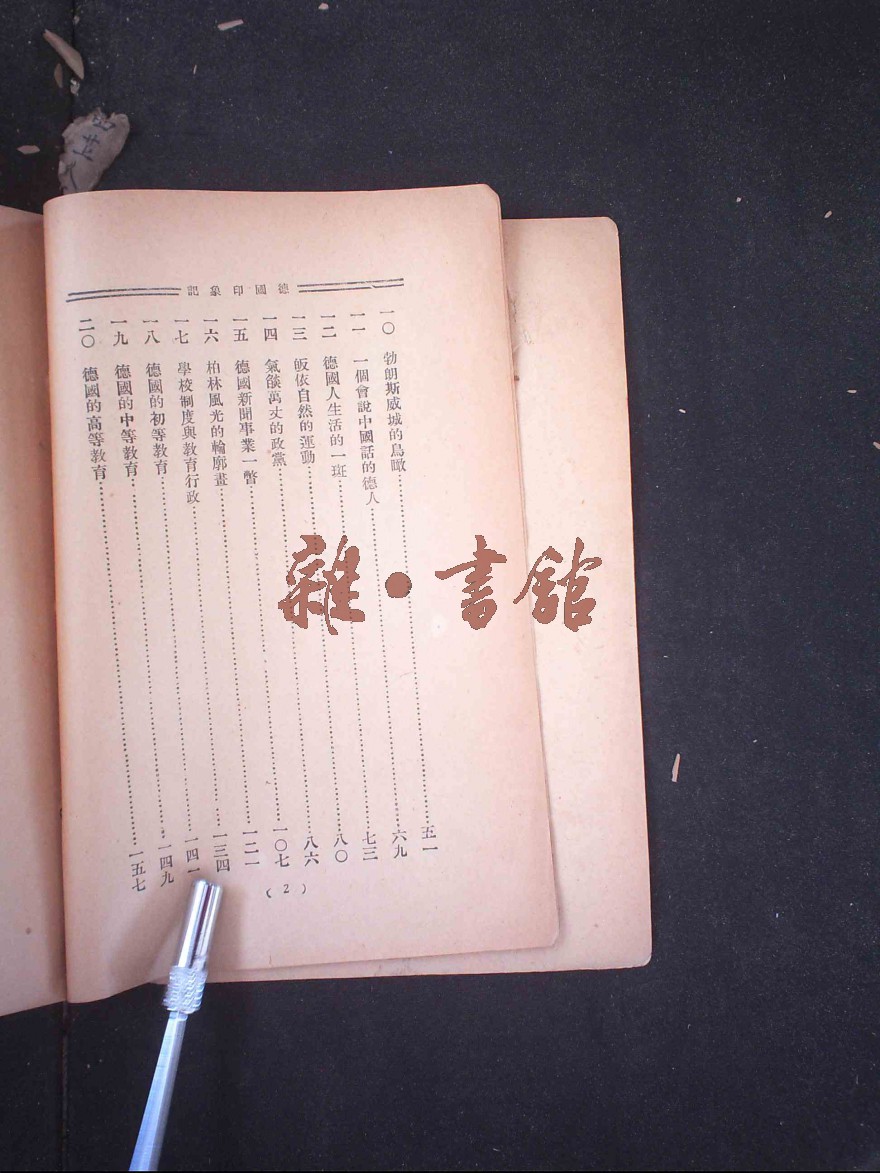 德國印象記
一〇 勃朗斯威城的鳥瞰……五一
一一 一個會說中國話的德人……六九
一二 德國人生活的一斑……七三
一三 皈依自然的運動……八〇
一四 氣燄萬丈的政黨……八六
一五 德國新聞事業一瞥……一〇七
一六 柏林風光的輪廓畫……一二一
一七 學校制度與教育行政……一三四
一八 德國的初等教育……一四一
一九 德國的中等教育……一四九
二〇 德國的高等教育……一五七
(2)
雜•書館